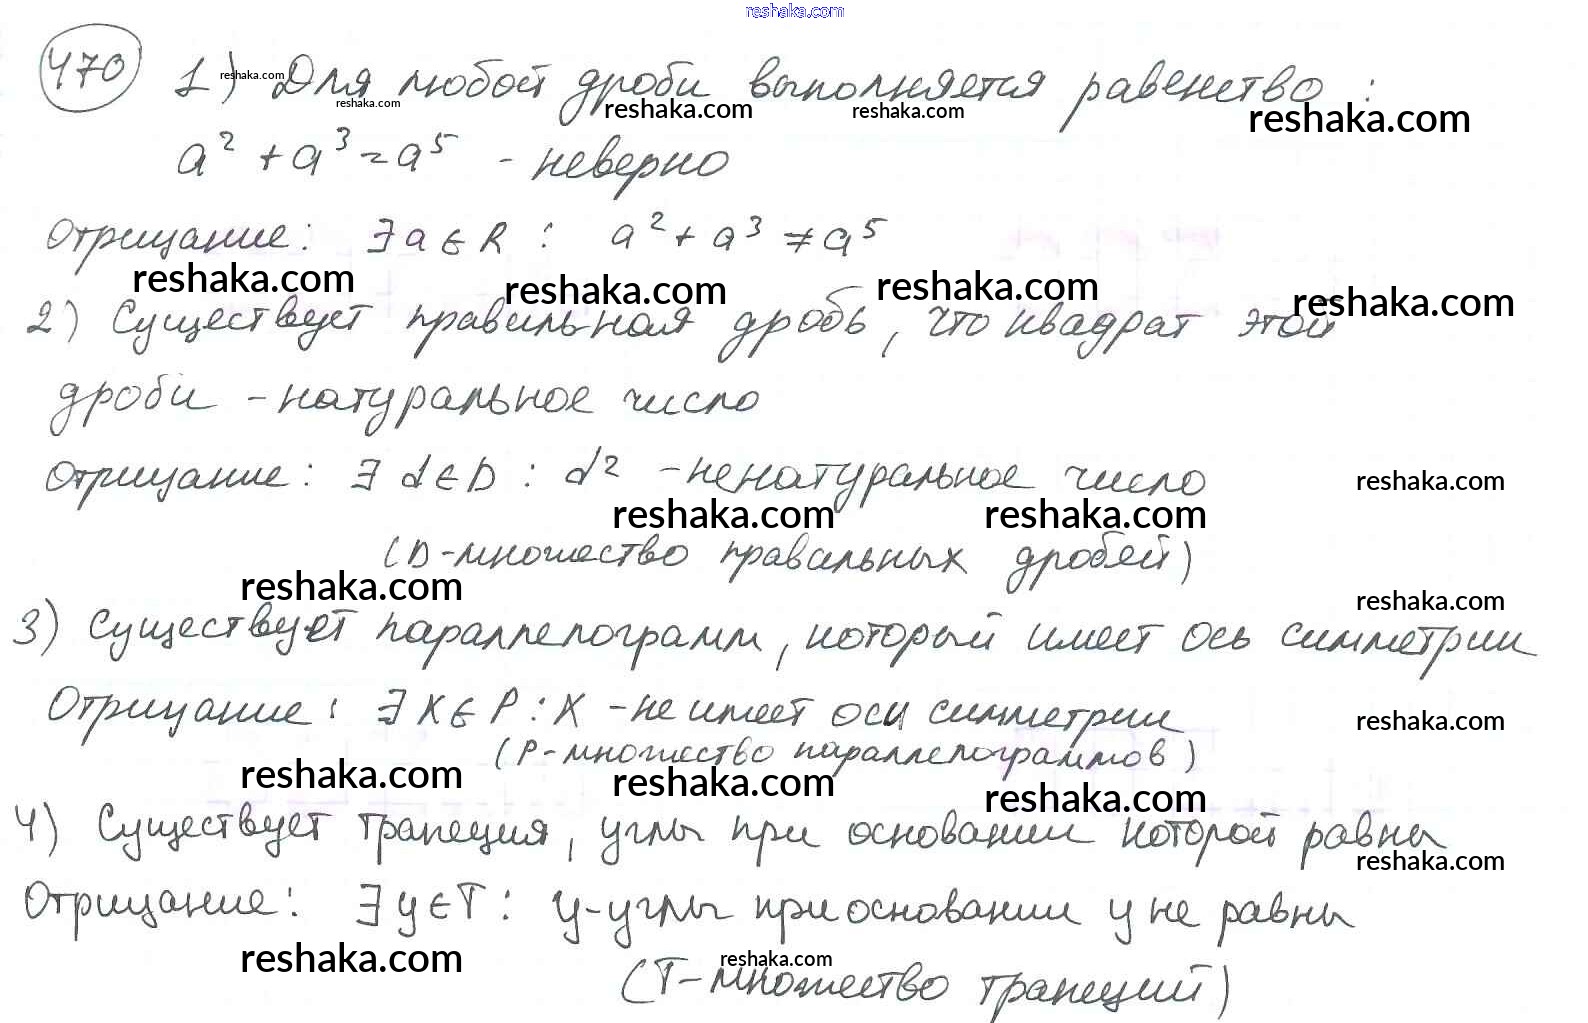 reshaka.com
470 1) Для любой дроби выполняется равенство :
reshaka.com reshaka.com reshaka.com reshaka.com reshaka.com
a² + a³ = a⁵ - неверно
Отрицание: ∃ a ∈ R : a² + a³ ≠ a⁵
reshaka.com reshaka.com reshaka.com reshaka.com
2) Существует правильная дробь, что квадрат этой
дроби - натуральное число
Отрицание: ∃ d ∈ D : d² - ненатуральное число
reshaka.com
reshaka.com reshaka.com
(D - множество правильных дробей)
reshaka.com reshaka.com
3) Существует параллелограмм, который имеет ось симметрии
Отрицание: ∃ X ∈ P : X - не имеет оси симметрии
reshaka.com
(P - множество параллелограммов)
reshaka.com reshaka.com reshaka.com
4) Существует трапеция, углы при основании которой равны
reshaka.com
Отрицание: ∃ y ∈ T : y - углы при основании y не равны
reshaka.com reshaka.com
(T - множество трапеций)